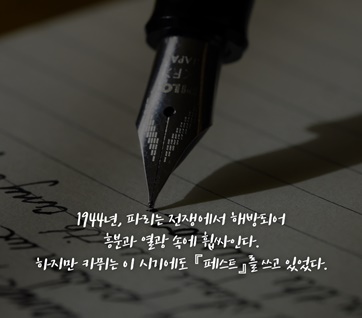 1944년, 파리는 전쟁에서 해방되어
흥분과 열광 속에 휩싸인다.
하지만 카뮈는 이 시기에도 『페스트』를 쓰고 있었다.